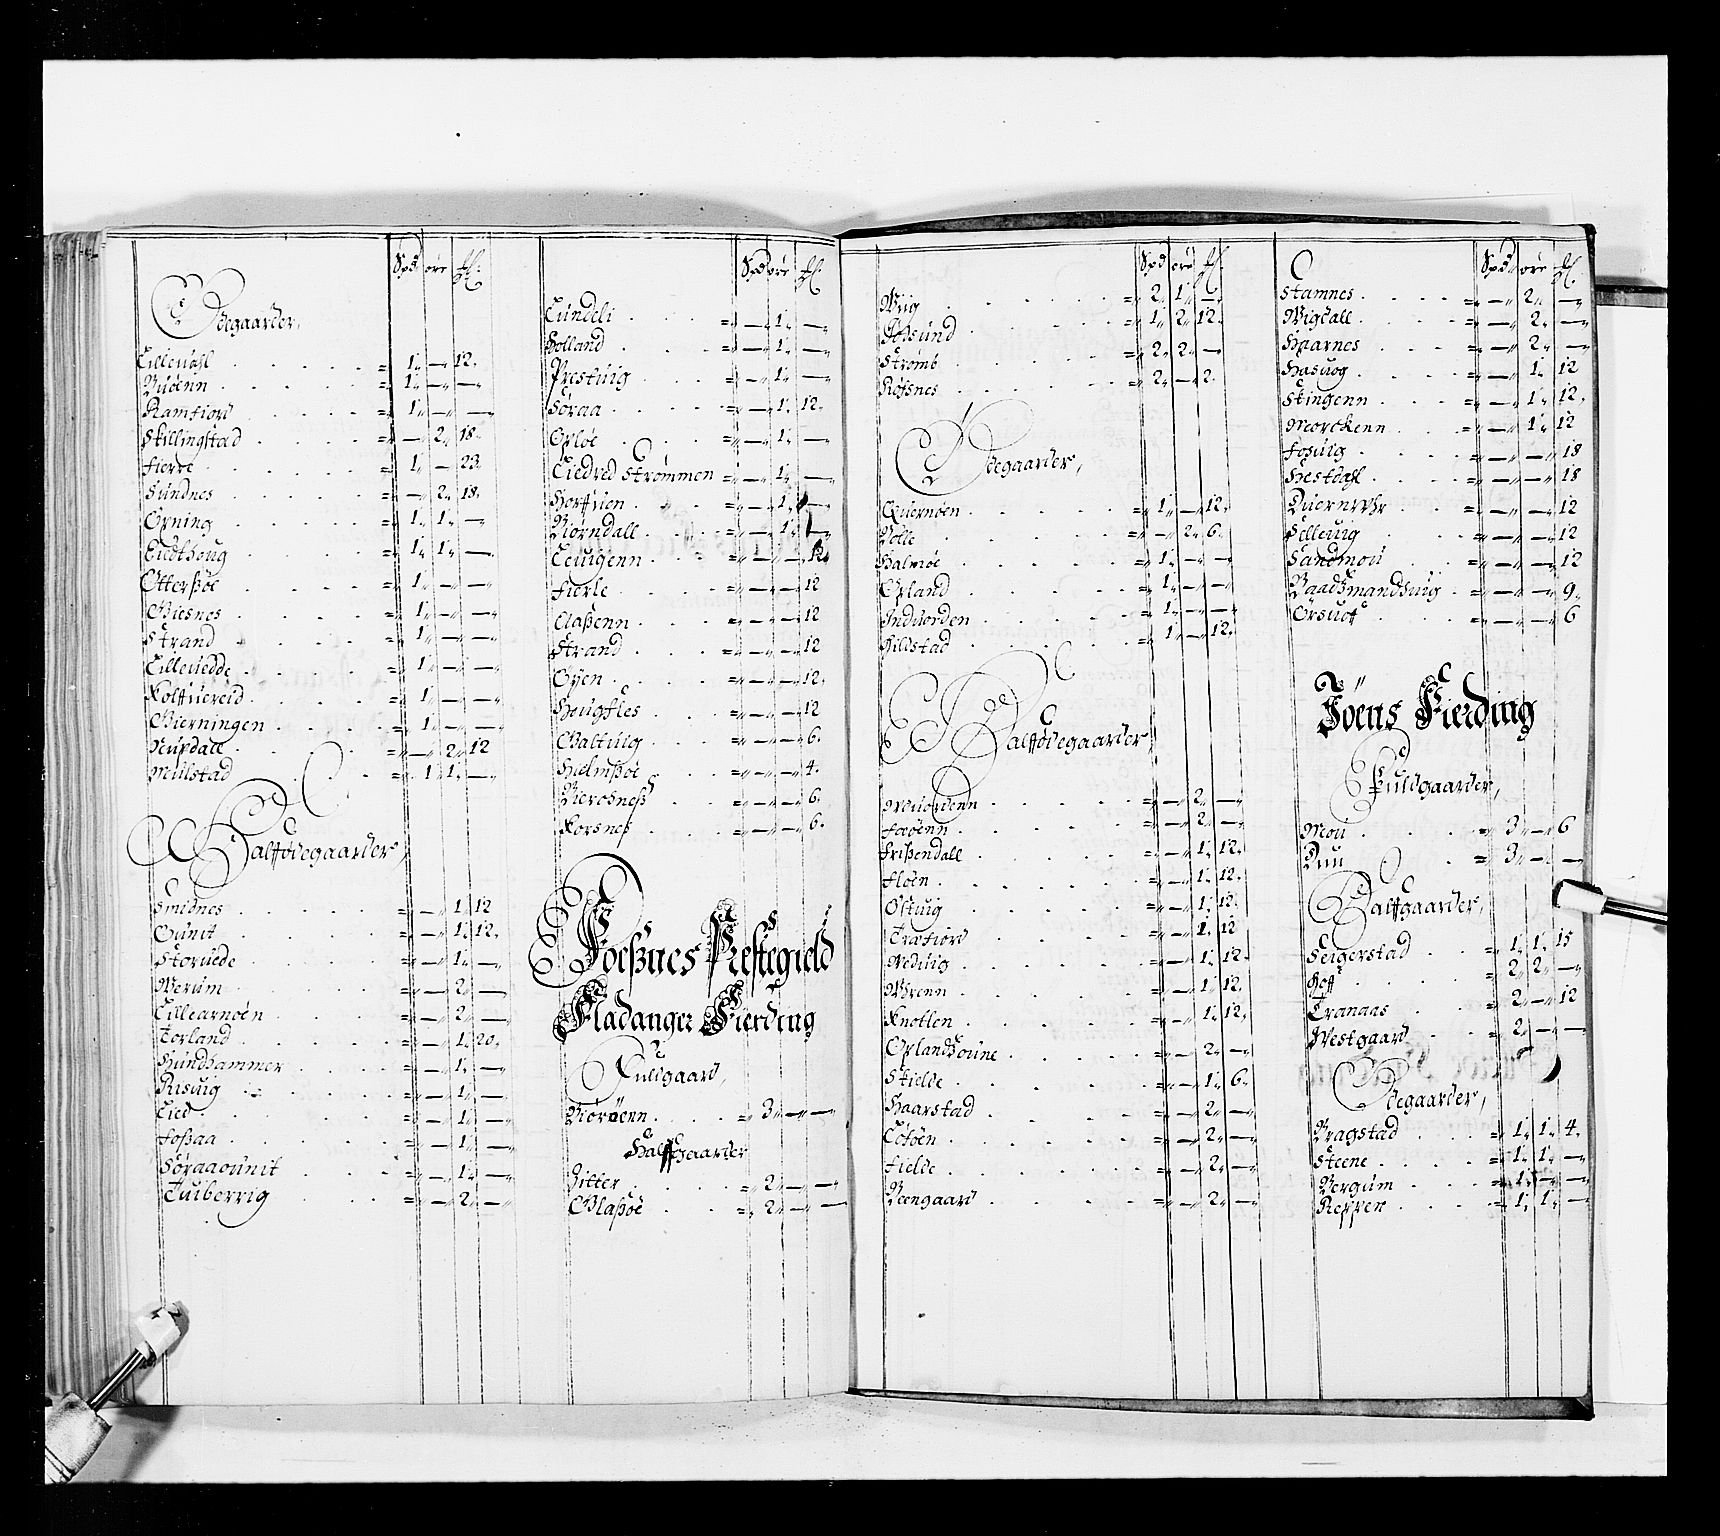 Spd ore
Ødegaarder,
Lilleuahl = 1 — 12.
Buöenn = 1 — —
Ramfiord = 1 — —
Skillingstad = — 2 18.
Fieroe = 1 — 23
Sundnes = — 2 18.
Örning = 1 1 —
Eidthoug = 1 1 —
Otterßöe = 1 — —
Giesnes = 1 — —
Strand = 1 — —
Lilleuedde = 1 — —
Kolffuereid = 1 — —
Gierningen = 1 — —
Nupdall = — 2 12
Mulstad = 1 1 —
Halffödegaarder,
Smidnes = — 1 12
Gunit = — 1 12.
Storuede = — 1 —
Werum = — 2 —
Lillearnöen = — 2 —
Torland = — 1 20.
Hundhammer = — 1 —
Risuig = — 1 —
Lied = — 1 —
Foßaa = — 1 —
Söraaounit = — 1 —
Tuiberrig = — 2 —
Spd ore
Lundeli = — 1 —
Holland = — 1 —
Prestuig = — 1 —
Söraa = — 1 12.
Opløe = — 1 —
Liedred Strømmen = — 1 —
Horffuen = — 1 —
Biørndall = — 1 —
Leuigenn = — — 12
Fierle = — — 12
Claßenn = — — 12
Strand = — — 12
Öyen = — — 12.
Hougfles = — — 12
Galtuig = — — 6.
Hielmßöe = — — 4.
Bierosneß = — — 6.
Korsneß = — — 6.
Foeßnes Prestegield
Fladanger Fierding
Fuldgaard,
Biöröenn = 3 — —
Halffgaarder
Zitter = 2 — —
Glaßöe = 2 — —
Spd ore
Wiig = 2 1 —
= 1 2 12.
Strömb = 2 2 —
Roßnes = 2 — 2.
Ödegaarder,
Quernöen = 1 — 12.
Bölle = — 2 6.
Halmöe = 1 — —
Opland = 1 — —
Induorden = 1 — —
Hildstad = 1 — 12.
Halffödegaarder
= — 2 —
Faöenn = — 2 —
Frißendall = — 1 12.
Flöen = — 1 12.
Östuig = — 1 12.
Trafiord = — 1 12
Weduig = — 1 12.
Wrenn = — 1 12.
Knotlen = — 1 12.
Oplandßoune = — 2 —
Stielde = — 1 6.
Haarstad = — 2 —
Lötöen = — 2 —
Fielde = — 2 —
Beengaard = — 2 —
Spd ore
Stamnes = — 2 —
Wigdall = — 2 —
Haarnes = — 2 —
Hasuog = — 1 12
Stingenn = — 1 12.
Morckenn = — 1 12
Fosuig = — — 18
Hestdahl = — — 18
= — — 12
Selleuig = — — 12
Sandmou = — — 12
Baadßmandßuig = — — 9.
Orsuoff = — — 6
Jöens Fierding
Fuldgaarder,
Mou = 3 — 6
Duu = 3 — —
Halffgaarder,
Seigerstad = 1 1 15
Hoff = 2 2 —
Tranaas = 2 — 12
Westgaard = 2 — —
Ödegaarder,
Bragstad = 1 1 4.
Steene = 1 1 —
Bergum = 1 — —
Repper = 1 1 —